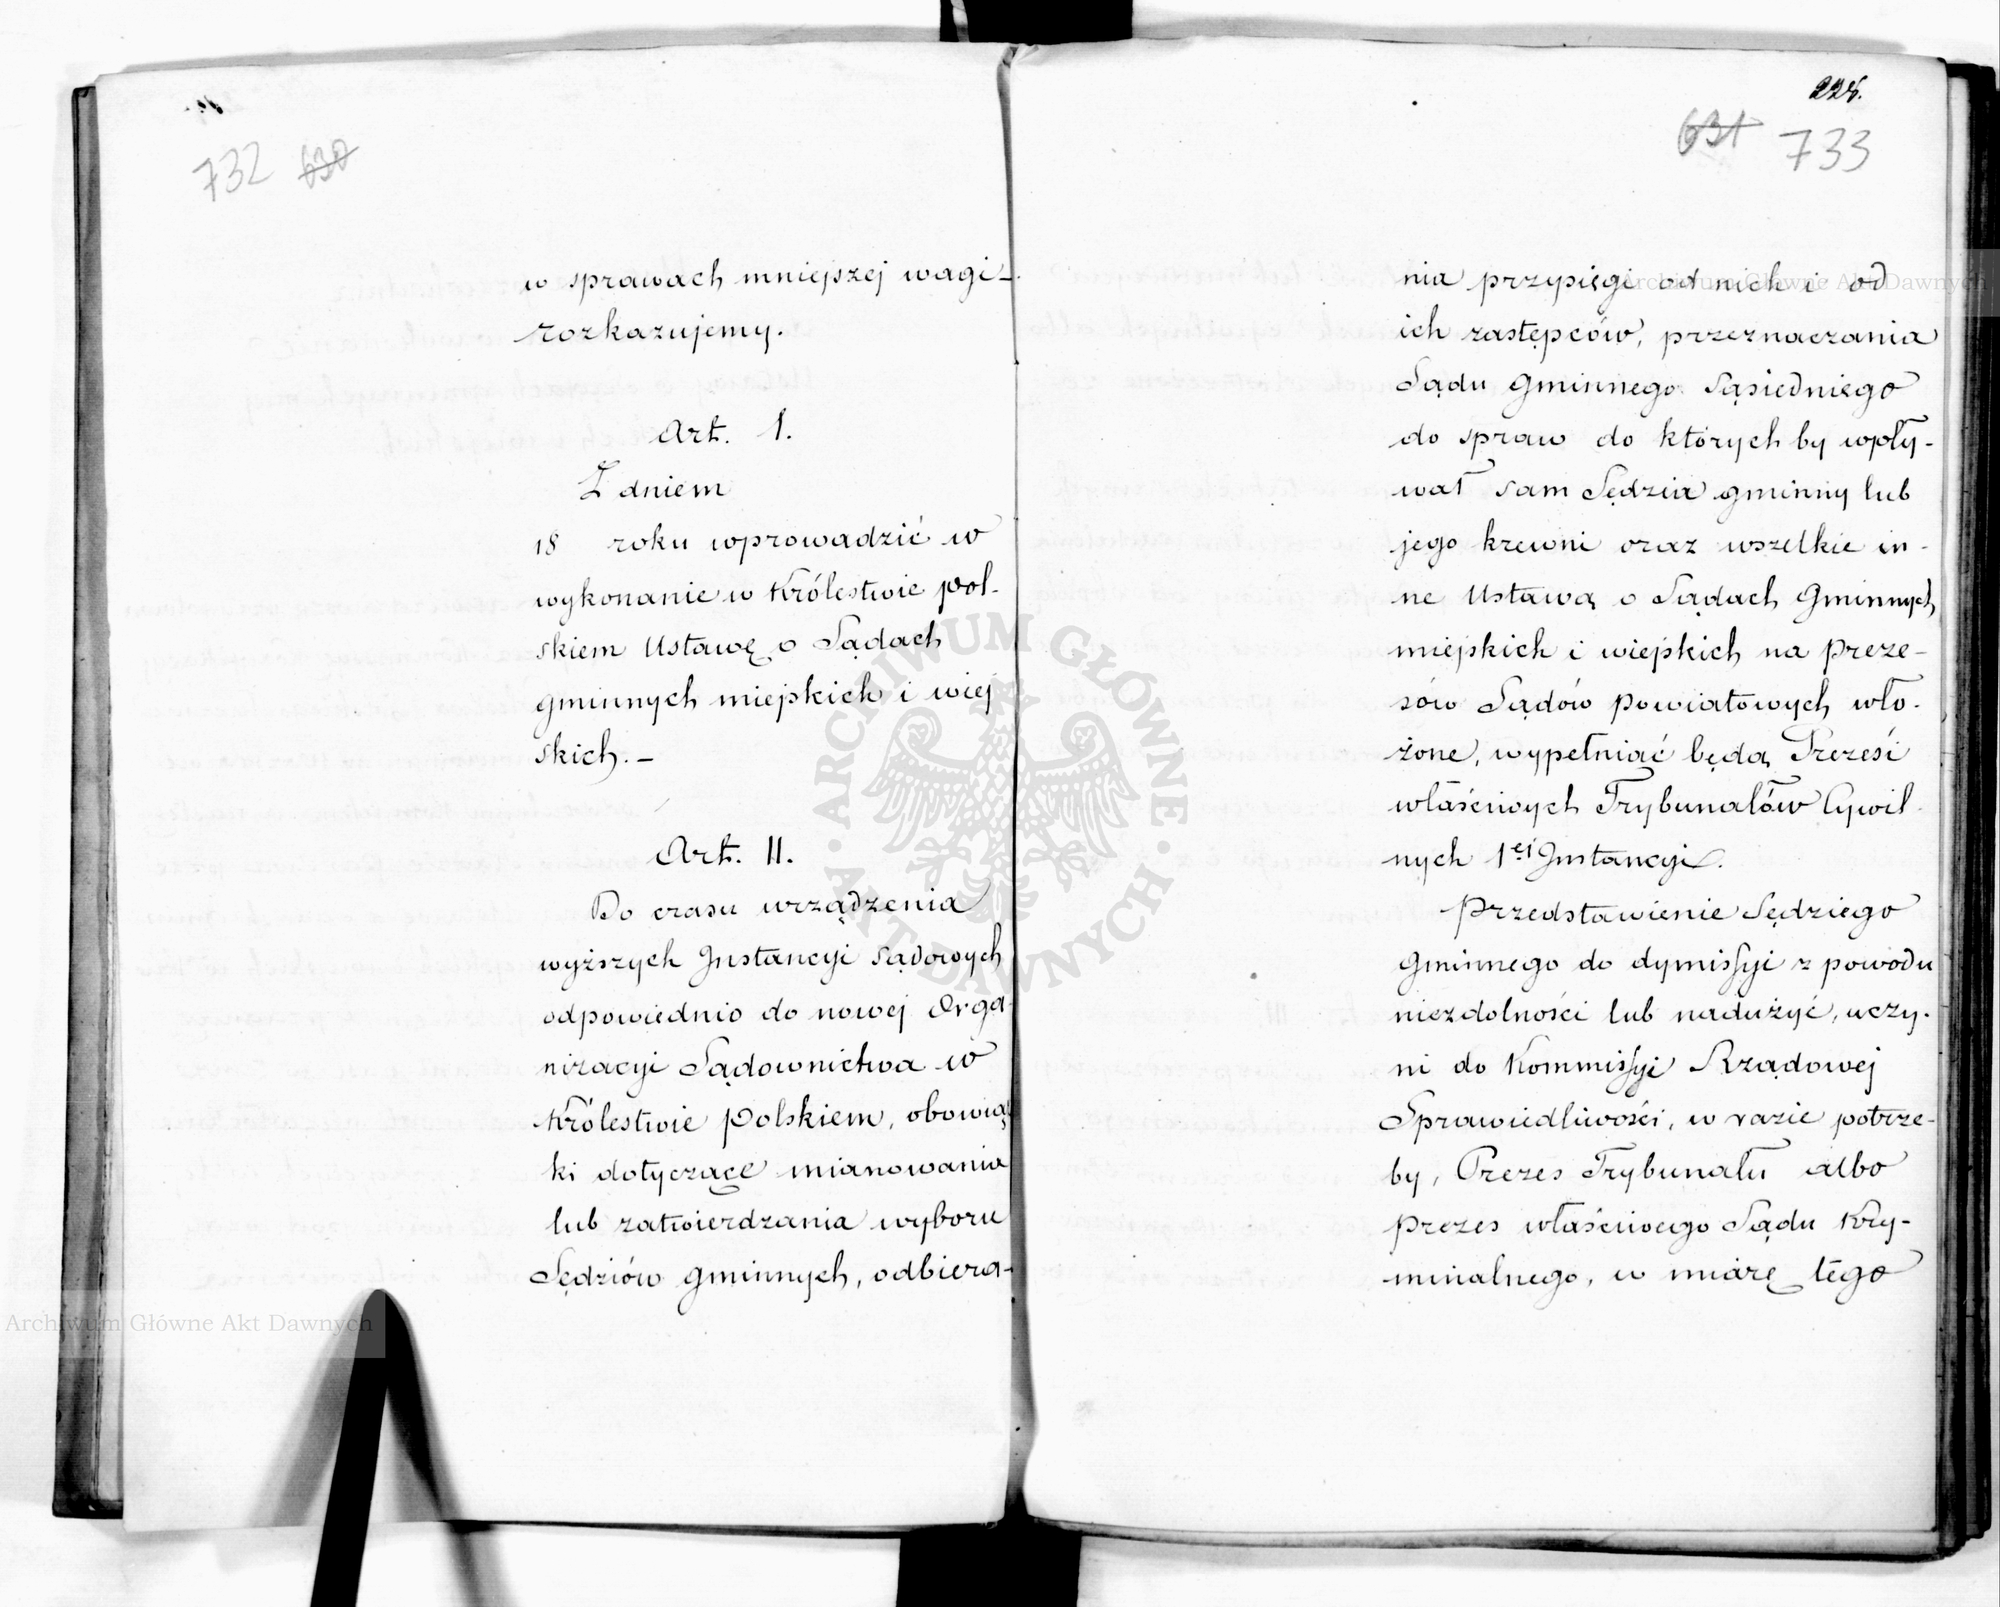 732 630
w sprawach mniejszej wagi –
rozkazujemy.
Art. I.
Z dniem
18 roku wprowadzić w
wykonanie w Królestwie Pol-
skiem Ustawę o Sądach
gminnych miejskich i wiej
skich. –
Art. II.
Do czasu urządzenia
wyższych Instancyi Sądowych
odpowiednio do nowej Orga-
nizacyi Sądownictwa w
Królestwie Polskiem, obowiąz
ki dotyczące mianowania
lub zatwierdzania wyboru
Sędziów gminnych, odbiera-
631 733
nia przysięgi od nich i od
ich zastępców, przeznaczania
Sądu Gminnego Sąsiedniego
do spraw do których by wpły-
wał sam Sędzia gminny lub
jego krewni oraz wszelkie in-
ne Ustawą o Sądach Gminnych
miejskich i wiejskich na Preze-
sów Sądów Powiatowych wło-
żone, wypełniać będą Prezesi
właściwych Trybunałów Cywil-
nych 1ej Instancyi.
Przedstawienie Sędziego
Gminnego do dymissyi z powodu
niezdolności lub nadużyć, uczy-
ni do Kommissyi Rządowej
Sprawiedliwości, w razie potrze-
by, Prezes Trybunału albo
Prezes właściwego Sądu Kry-
minalnego, w miarę tego
ARCHIWUM GŁÓWNE AKT DAWNYCH
Archiwum Główne Akt Dawnych
Archiwum Główne Akt Dawnych